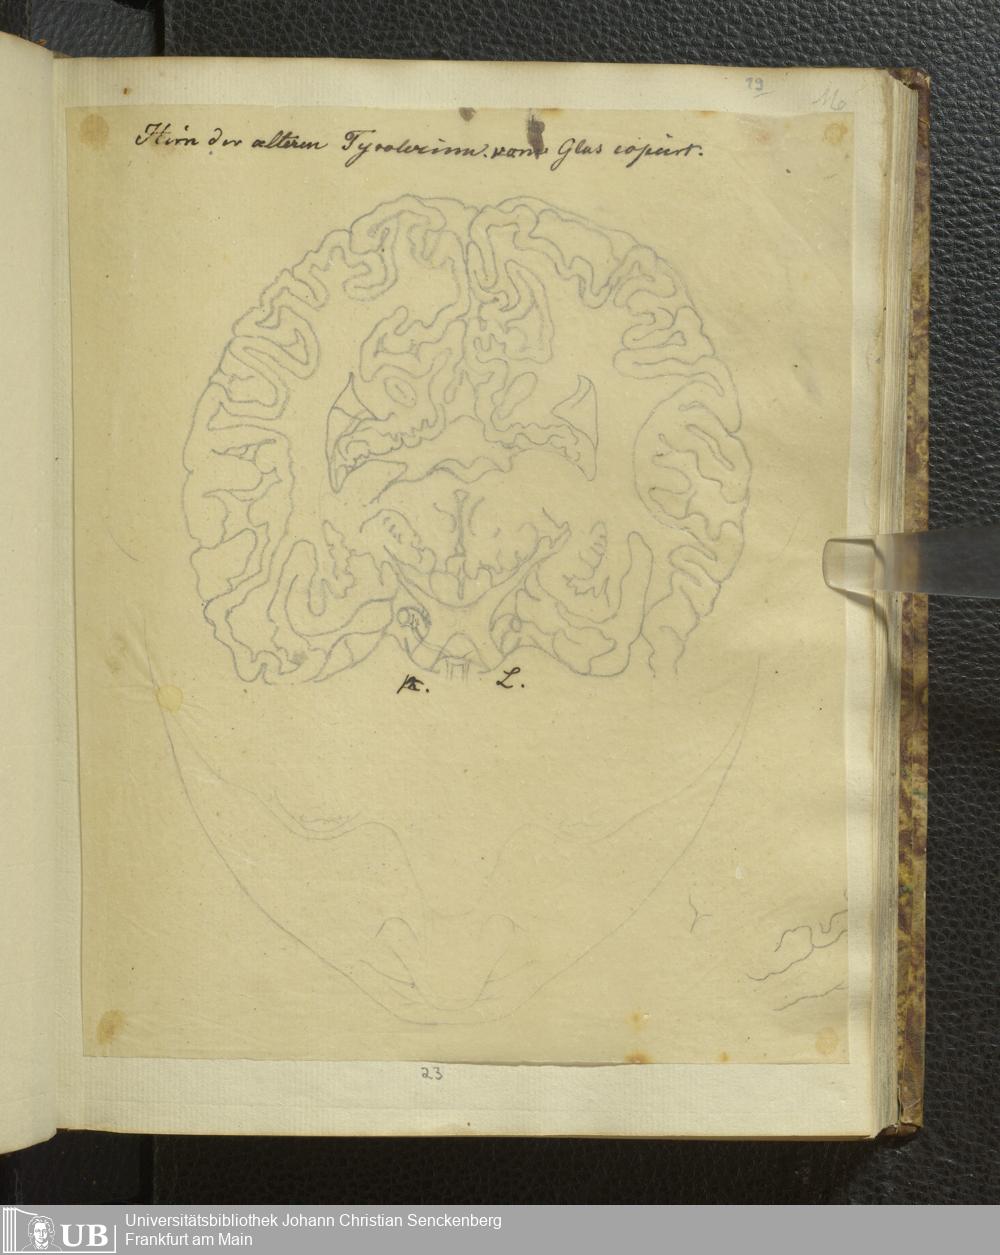 19
Hirn der ælteren Tyrolerinn. vom Glas copiirt.
R. L.
23
UB
Universitätsbibliothek Johann Christian Senckenberg
Frankfurt am Main